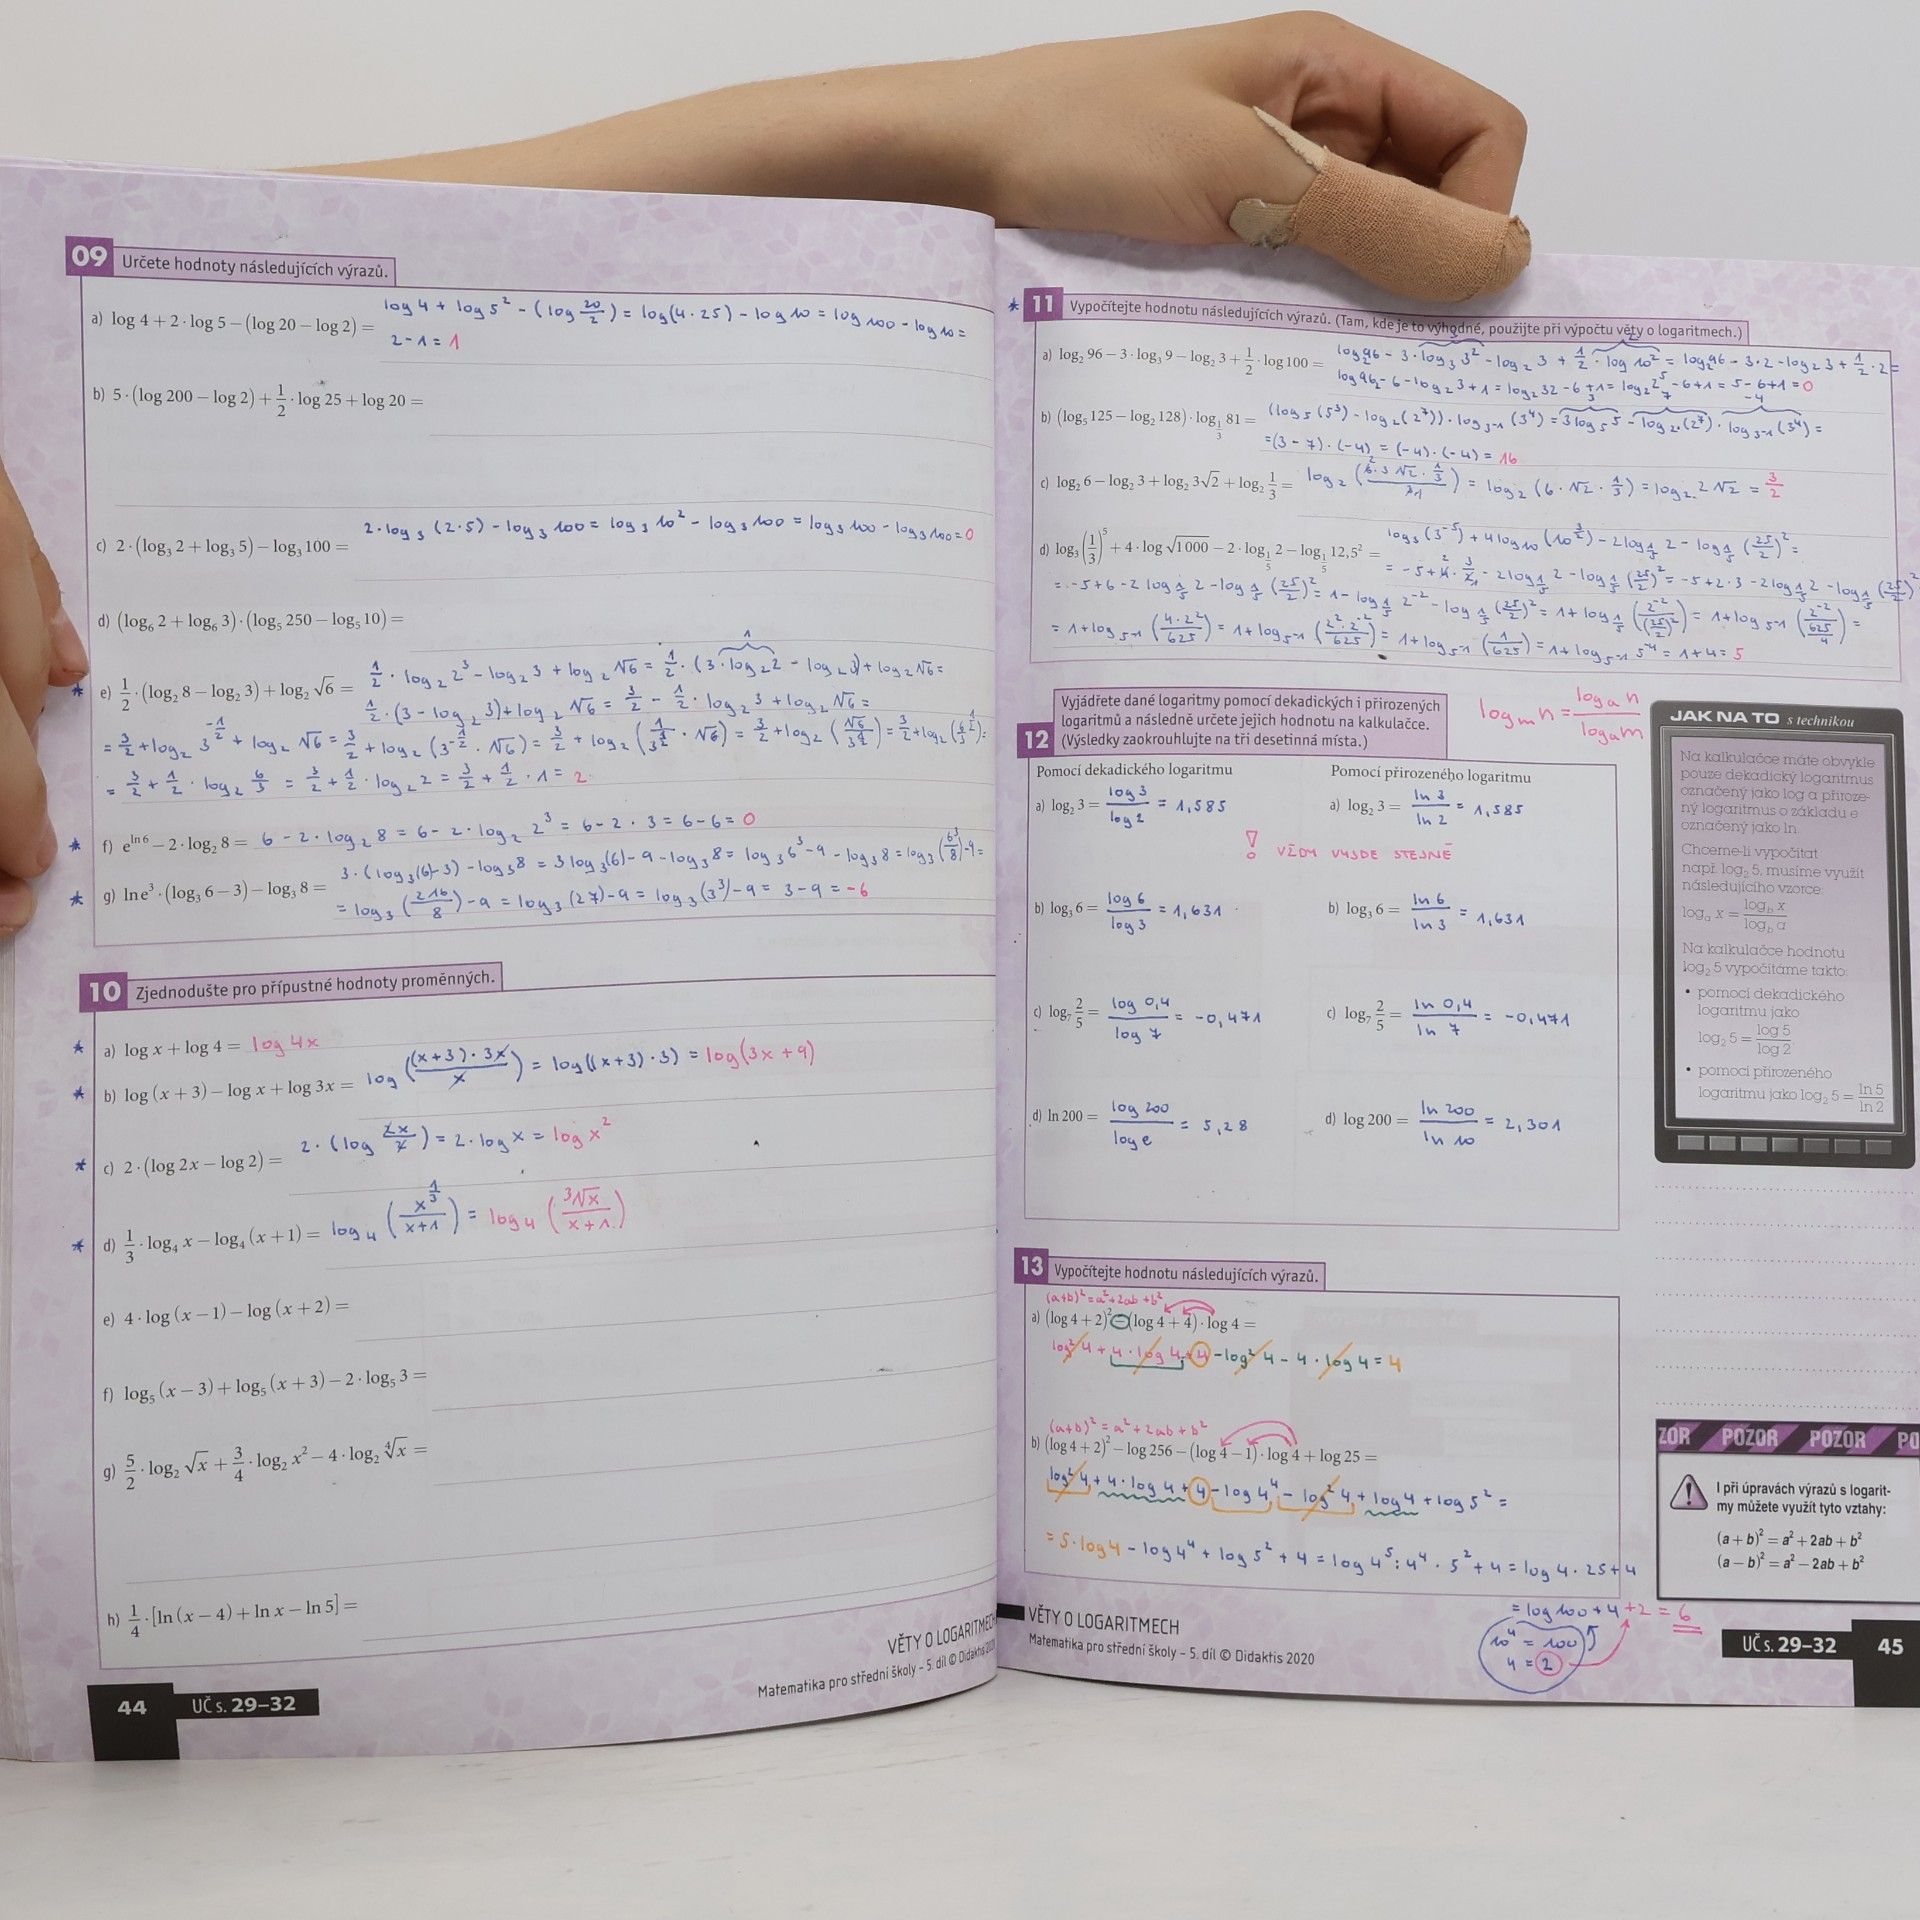 09 Určete hodnoty následujících výrazů.
a) log 4 + 2 · log 5 − (log 20 − log 2) = log 4 + log 5² − (log 20/2) = log(4 · 25) − log 10 = log 100 − log 10 =
2 − 1 = 1
b) 5 · (log 200 − log 2) + 1/2 · log 25 + log 20 =
c) 2 · (log₃ 2 + log₃ 5) − log₃ 100 = 2 · log₃ (2 · 5) − log₃ 100 = log₃ 10² − log₃ 100 = log₃ 100 − log₃ 100 = 0
d) (log₆ 2 + log₆ 3) · (log₅ 250 − log₅ 10) =
* e) 1/2 · (log₂ 8 − log₂ 3) + log₂ √6 = 1/2 · log₂ 2³ − log₂ 3 + log₂ √6 = 1/2 · (3 · log₂ 2 − log₂ 3) + log₂ √6 =
1/2 · (3 − log₂ 3) + log₂ √6 = 3/2 − 1/2 · log₂ 3 + log₂ √6 =
= 3/2 + log₂ 3^(−1/2) + log₂ √6 = 3/2 + log₂ (3^(−1/2) · √6) = 3/2 + log₂ (1/3^(1/2) · √6) = 3/2 + log₂ (√6/3^(1/2)) = 3/2 + log₂ (6/3)^(1/2) =
= 3/2 + 1/2 · log₂ 6/3 = 3/2 + 1/2 · log₂ 2 = 3/2 + 1/2 · 1 = 2
* f) e^(ln 6) − 2 · log₂ 8 = 6 − 2 · log₂ 8 = 6 − 2 · log₂ 2³ = 6 − 2 · 3 = 6 − 6 = 0
* g) ln e³ · (log₃ 6 − 3) − log₃ 8 = 3 · (log₃(6) − 3) − log₃ 8 = 3 log₃(6) − 9 − log₃ 8 = log₃ 6³ − 9 − log₃ 8 = log₃ (6³/8) − 9 =
= log₃ (216/8) − 9 = log₃ (27) − 9 = log₃ (3³) − 9 = 3 − 9 = −6
10 Zjednodušte pro přípustné hodnoty proměnných.
* a) log x + log 4 = log 4x
* b) log (x + 3) − log x + log 3x = log ((x+3) · 3x / x) = log((x+3) · 3) = log(3x + 9)
* c) 2 · (log 2x − log 2) = 2 · (log 2x/2) = 2 · log x = log x²
* d) 1/3 · log₄ x − log₄ (x + 1) = log₄ (x^(1/3) / x+1) = log₄ (³√x / x+1)
e) 4 · log (x − 1) − log (x + 2) =
f) log₅ (x − 3) + log₅ (x + 3) − 2 · log₅ 3 =
g) 5/2 · log₂ √x + 3/4 · log₂ x² − 4 · log₂ ⁴√x =
h) 1/4 · [ln (x − 4) + ln x − ln 5] =
VĚTY O LOGARITMECH
Matematika pro střední školy – 5. díl © Didaktis 2020
44 UČ s. 29–32
* 11 Vypočítejte hodnotu následujících výrazů. (Tam, kde je to výhodné, použijte při výpočtu věty o logaritmech.)
a) log₂ 96 − 3 · log₃ 9 − log₂ 3 + 1/2 · log 100 = log₂96 − 3 · log₃ 3² − log₂ 3 + 1/2 · log 10² = log₂96 − 3 · 2 − log₂ 3 + 1/2 · 2 =
log96₂ − 6 − log₂ 3 + 1 = log₂ 32 − 6 + 1 = log₂ 2⁵ − 6 + 1 = 5 − 6 + 1 = 0
b) (log₅ 125 − log₂ 128) · log_(1/3) 81 = (log₅ (5³) − log₂ (2⁷)) · log₃₋₁ (3⁴) = 3 log₅ 5 − log₂ (2⁷) · log₃₋₁ (3⁴) =
= (3 − 7) · (−4) = (−4) · (−4) = 16
c) log₂ 6 − log₂ 3 + log₂ 3√2 + log₂ 1/3 = log₂ (6 · 3√2 · 1/3 / 3) = log₂ (6 · √2 · 1/3) = log₂ 2√2 = 3/2
d) log₃ (1/3)⁵ + 4 · log √1000 − 2 · log_(1/5) 2 − log_(1/5) 12,5² = log₃ (3⁻⁵) + 4 log₁₀ (10^(3/2)) − 2 log_(1/5) 2 − log_(1/5) (25/2)² =
= −5 + 4 · 3/2 − 2 log_(1/5) 2 − log_(1/5) (25/2)² = −5 + 2 · 3 − 2 log_(1/5) 2 − log_(1/5) (25/2)²
= −5 + 6 − 2 log_(1/5) 2 − log_(1/5) (25/2)² = 1 − log_(1/5) 2⁻² − log_(1/5) (25/2)² = 1 + log_(1/5) (2⁻²/(25/2)²) = 1 + log₅₋₁ (2⁻²/(625/4)) =
= 1 + log₅₋₁ (4 · 2²/625) = 1 + log₅₋₁ (2² · 2⁻²/625) = 1 + log₅₋₁ (1/625) = 1 + log₅₋₁ 5⁻⁴ = 1 + 4 = 5
12 Vyjádřete dané logaritmy pomocí dekadických i přirozených
logaritmů a následně určete jejich hodnotu na kalkulačce.
(Výsledky zaokrouhlujte na tři desetinná místa.)
log_m n = log_a n / log_a m
Pomocí dekadického logaritmu Pomocí přirozeného logaritmu
a) log₂ 3 = log 3 / log 2 = 1,585 a) log₂ 3 = ln 3 / ln 2 = 1,585
! VŽDY VYJDE STEJNĚ
b) log₃ 6 = log 6 / log 3 = 1,631 b) log₃ 6 = ln 6 / ln 3 = 1,631
c) log₇ 2/5 = log 0,4 / log 7 = −0,471 c) log₇ 2/5 = ln 0,4 / ln 7 = −0,471
d) ln 200 = log 200 / log e = 5,28 d) log 200 = ln 200 / ln 10 = 2,301
JAK NA TO s technikou
Na kalkulačce máte obvykle
pouze dekadický logaritmus
označený jako log a přiroze-
ný logaritmus o základu e
označený jako ln.
Chceme-li vypočítat
např. log₂ 5, musíme využít
následujícího vzorce:
log_a x = log_b x / log_b a
Na kalkulačce hodnotu
log₂ 5 vypočítáme takto:
• pomocí dekadického
logaritmu jako
log₂ 5 = log 5 / log 2
• pomocí přirozeného
logaritmu jako log₂ 5 = ln 5 / ln 2
13 Vypočítejte hodnotu následujících výrazů.
(a+b)² = a² + 2ab + b²
a) (log 4 + 2)² − (log 4 + 4) · log 4 =
log² 4 + 4 · log 4 + 4 − log² 4 − 4 · log 4 = 4
(a+b)² = a² + 2ab + b²
b) (log 4 + 2)² − log 256 − (log 4 − 1) · log 4 + log 25 =
log² 4 + 4 · log 4 + 4 − log 4⁴ − log² 4 + log 4 + log 5² =
= 5 · log 4 − log 4⁴ + log 5² + 4 = log 4⁵ : 4⁴ · 5² + 4 = log 4 · 25 + 4
= log 100 + 4 + 2 = 6
10⁴ = 100
4 = 2
ZOR POZOR POZOR PO
I při úpravách výrazů s logarit-
my můžete využít tyto vztahy:
(a + b)² = a² + 2ab + b²
(a − b)² = a² − 2ab + b²
VĚTY O LOGARITMECH
Matematika pro střední školy – 5. díl © Didaktis 2020
UČ s. 29–32 45